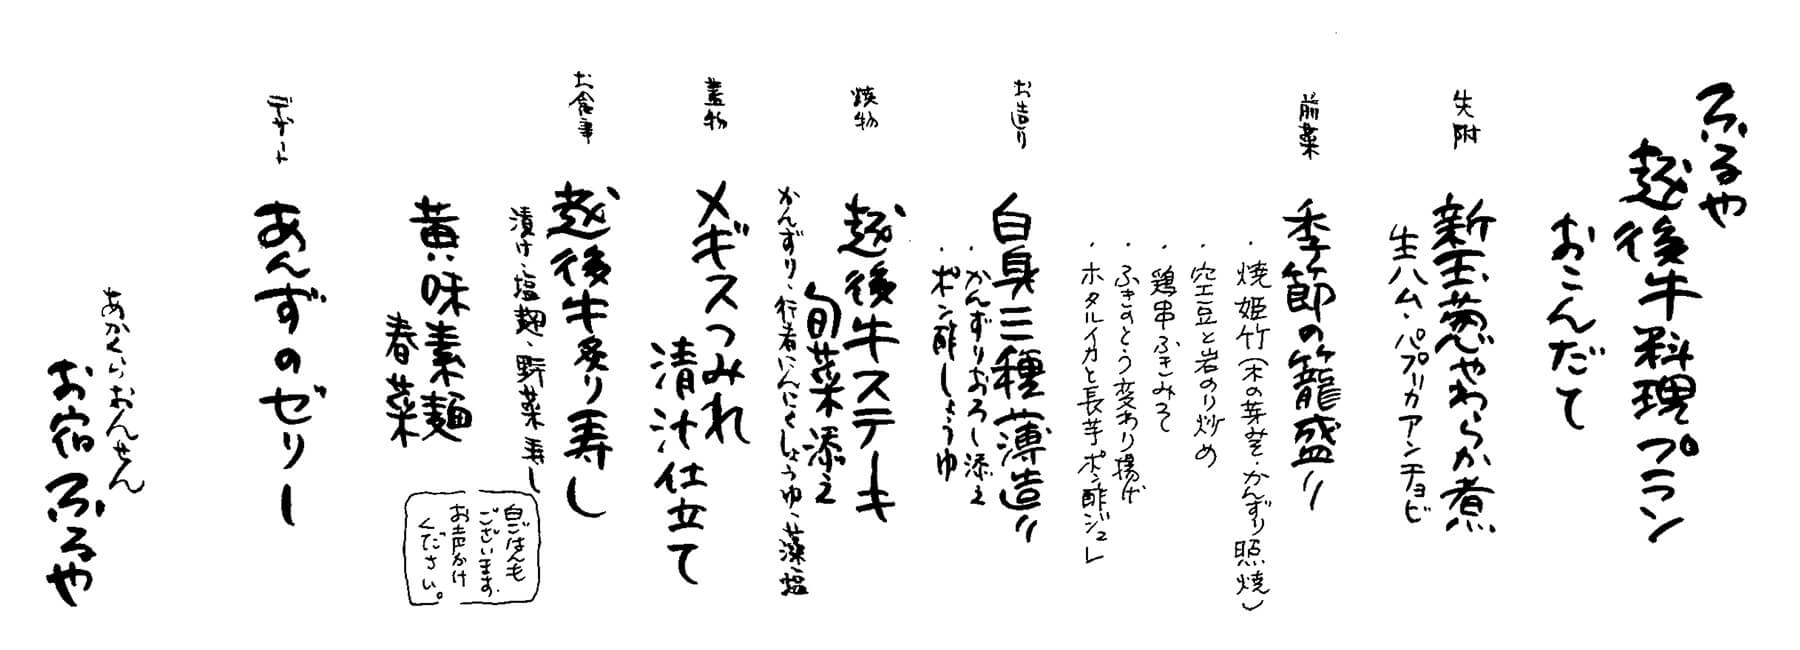 ふるや
越後牛料理プラン
おこんだて
先附
新玉葱やわらか煮
生ハム・パプリカアンチョビ
前菜
季節の籠盛り
・焼姫竹(木の芽堂・かんずり照焼)
・空豆と岩のり炒め
・鶏串ふきみそ
・ふきのとう変わり揚げ
・ホタルイカと長芋ポン酢ジュレ
お造り
白身三種薄造り
・かんずりおろし添え
・ポン酢しょうゆ
焼物
越後牛ステーキ
旬菜添え
かんずり、行者にんにくしょうゆ、藻塩
蓋物
メギスつみれ
清汁仕立て
お食事
越後牛炙り寿し
漬け、塩麹、野菜寿し
黄味素麺
春菜
白ごはんも
ございます。
お声かけ
ください。
デザート
あんずのゼリー
あかくらおんせん
お宿ふるや